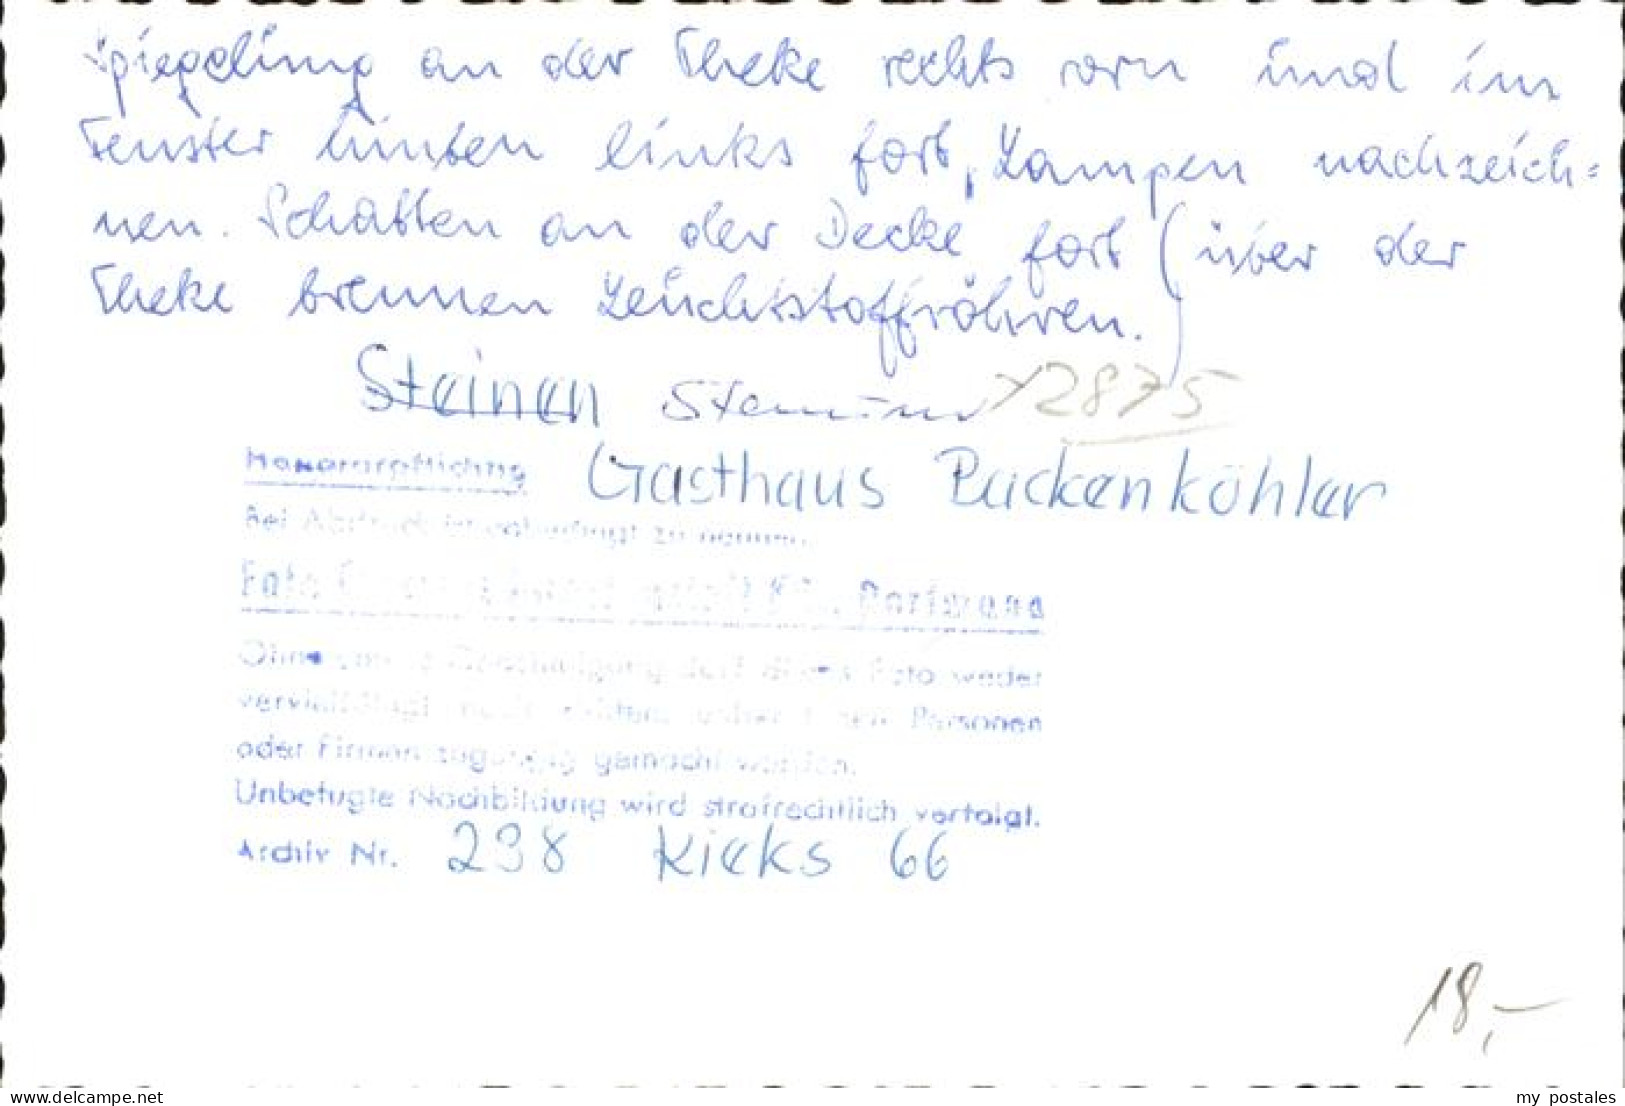 Spiegelung an der Theke rechts vorn und im
Fenster hinten links fort, Lampen nachzeich=
nen. Schatten an der Decke fort (über der
Theke brennen Leuchtstoffröhren.)
Steinen 72875
Honorarpflichtig Gasthaus Packenköhler
Bei Abdruck ist unbedingt zu nennen:
Foto
Ohne darf Foto weder
vervielfältigt noch Personen
oder Firmen zugängig gemacht werden.
Unbefugte Nachbildung wird strafrechtlich verfolgt.
Archiv Nr. 298 Kieks 66
18,-
delcampe.net
my_postales